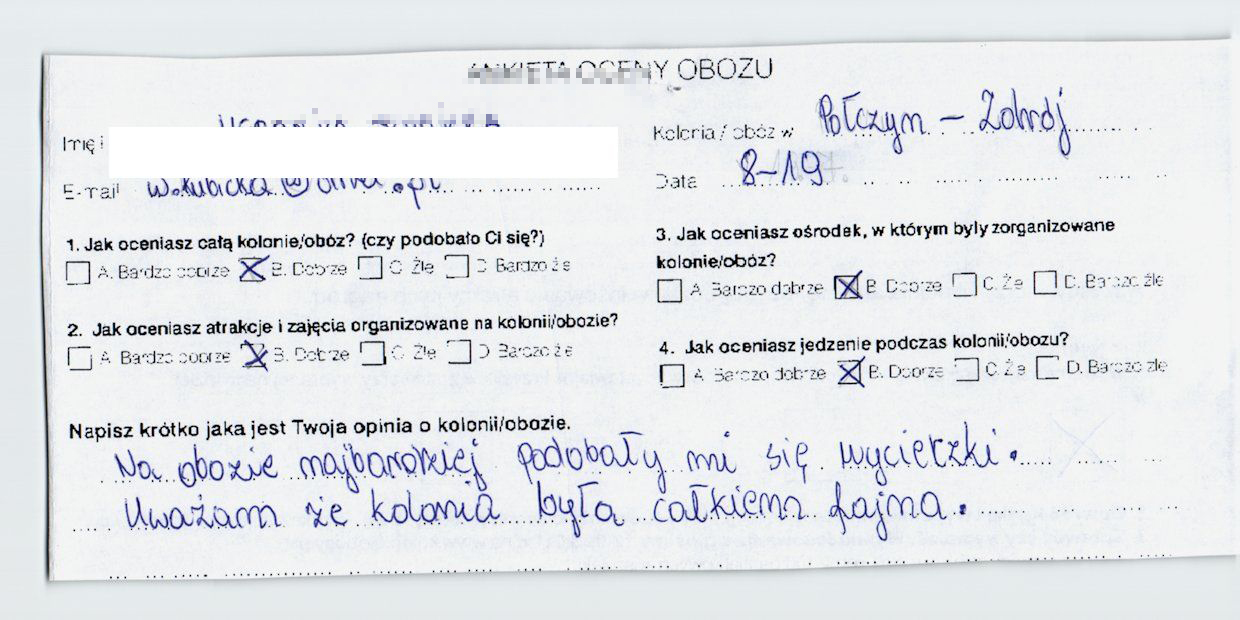 ANKIETA OCENY OBOZU
Imię i
E-mail
Kolonia / obóz w Połczyn - Zdrój
Data 8-19
1. Jak oceniasz całą kolonie/obóz? (czy podobało Ci się?)
A. Bardzo dobrze B. Dobrze C. Źle D. Bardzo źle
2. Jak oceniasz atrakcje i zajęcia organizowane na kolonii/obozie?
A. Bardzo dobrze B. Dobrze C. Źle D. Bardzo źle
3. Jak oceniasz ośrodek, w którym byly zorganizowane
kolonie/obóz?
A. Bardzo dobrze B. Dobrze C. Źle D. Bardzo źle
4. Jak oceniasz jedzenie podczas kolonii/obozu?
A. Bardzo dobrze B. Dobrze C. Źle D. Bardzo źle
Napisz krótko jaka jest Twoja opinia o kolonii/obozie.
Na obozie najbardziej podobały mi się wycieczki.
Uważam że kolonia była całkiem fajna.